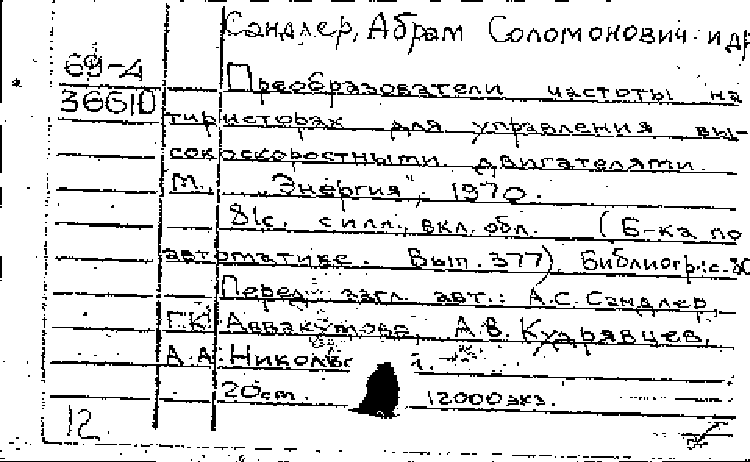 Сандлер, Абрам Соломонович и др
69-А
36610
Преобразователи частоты на
тиристорах для управления вы-
сокоскоростными двигателями.
М., "Энергия", 1970.
81с. с илл., вкл. обл. (Б-ка по
автоматике. Вып. 377). Библиогр.: с. 80
Перед загл. авт.: А.С. Сандлер,
Г.К. Аввакумова, А.В. Кудрявцев,
А.А. 
20 см. 12000 экз.
12